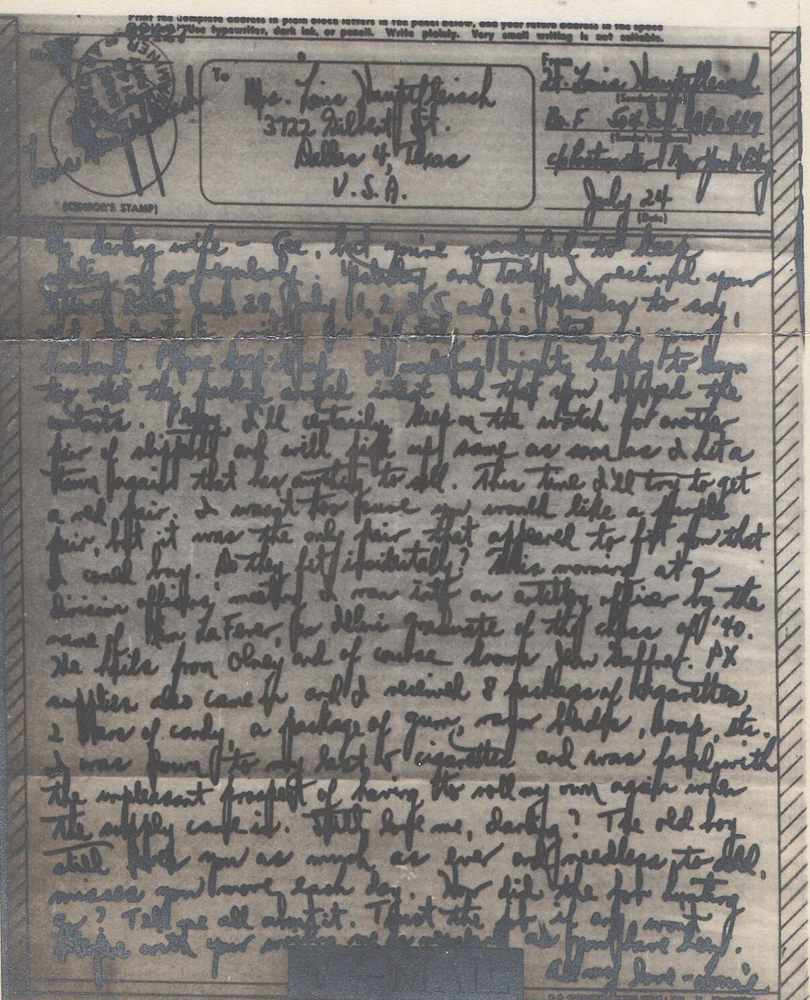 Print the complete address in plain block letters in the panel below, and your return address in the space
Use typewriter, dark ink, or pencil. Write plainly. Very small writing is not suitable.
To
From
Mrs. Louis
3722 Gilbert St.
Dallas 4, Texas
U.S.A.
Lt. Louis
Co. F APO 469
c/o Postmaster New York City
July 24
(Date)
(CENSOR'S STAMP)
My darling wife - Gee, but you're wonderful to keep
writing me so regularly. Yesterday and today I received your
letters dated June 29, July 1, 2, 3, 5 and 6. Needless to say,
husband. Please keep it up. happy to learn
too that the package arrived intact and that you enjoyed the
contents. I'll certainly keep on the watch for another
pair of slippers and will pick up same as soon as I hit a
town again that has anything to sell. This time I'll try to get
a red pair. I wasn't too sure you would like a purple
pair, but it was the only pair that appeared to fit you that
I could buy. Do they fit incidentally? This morning at a
division officers' meeting I ran into an artillery officer by the
name of LaFever, an Illini graduate of the class of '40.
He hails from Olney and of course knows Gaffner. PX
supplies also came in and I received 8 packages of cigarettes,
2 bars of candy, a package of gum, razor blades, soap, etc.
I was down to my last cigarettes and was faced with
the unpleasant prospect of having to roll my own again when
the supply came in. Still love me, darling? The old boy
still loves you as much as ever and needless to add,
misses you more each day. How did the hunting
go? Tell me all about it. Trust the
with your as you have been.
All my love -
V-MAIL